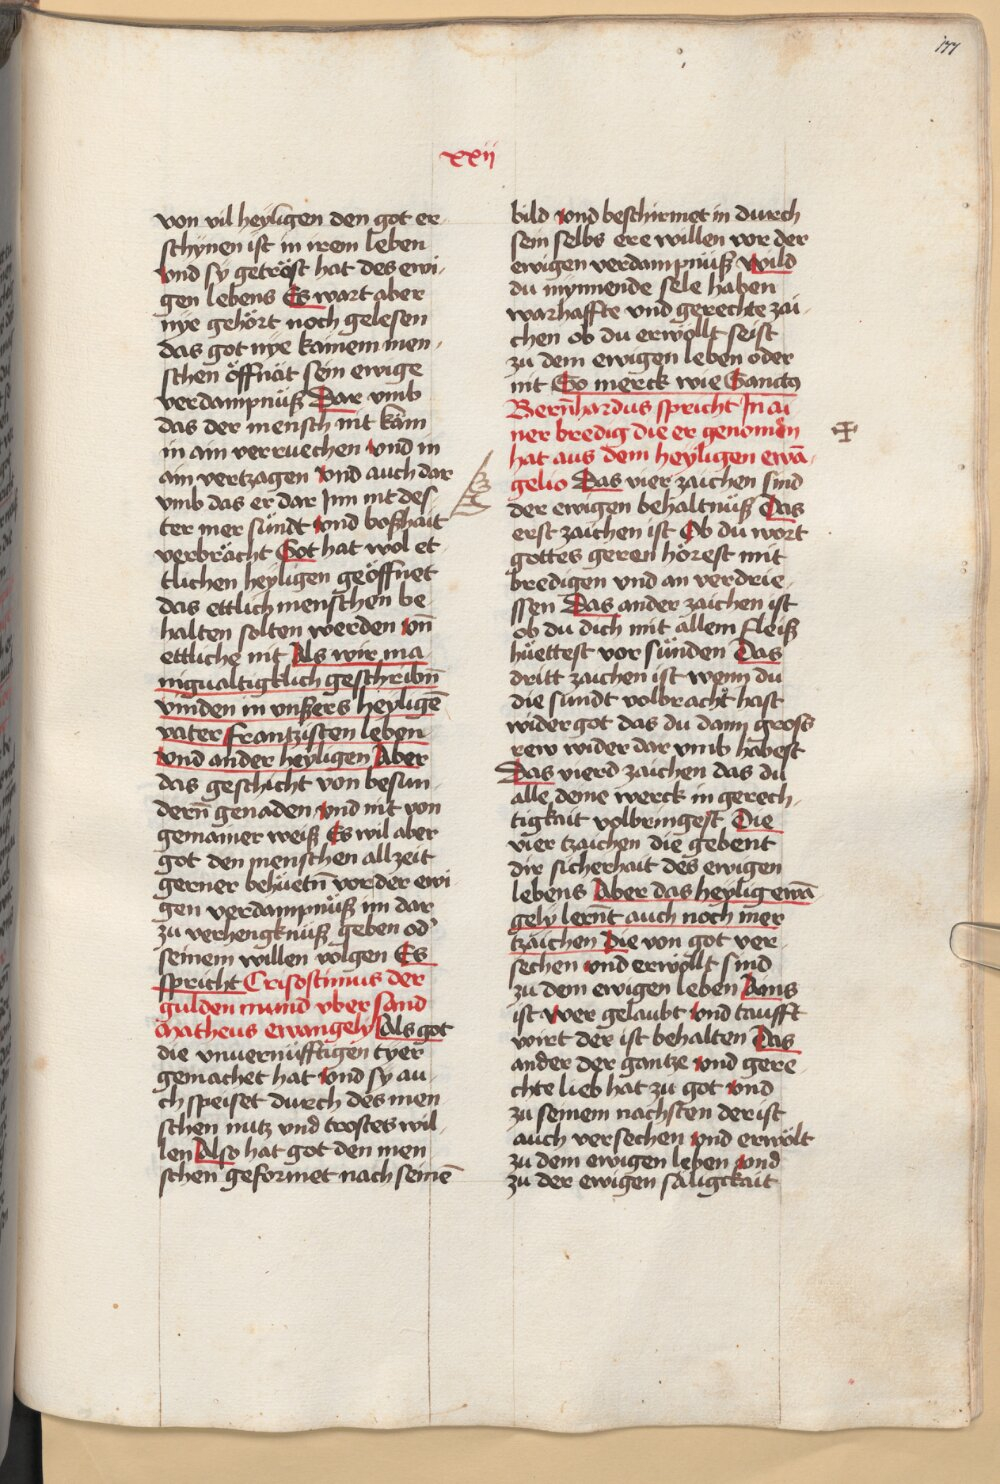 177
xxij
von vil heyligen den got er
schynen ist in irem leben
vnd sy getröst hat des ewi-
gen lebens Es wart aber
nye gehört noch gelesen
das got nye kainem men-
schen öffnät sein ewige
verdampnüß Dar vmb
das der mensch nit käm
in ain verruechen vnd in
ain vertzagen vnd auch dar
vmb das er dar Inn nit des-
ter mer sündt vnd boßhait
verbrächt Got hat wol et
tlichen heyligen geöffnet
das ettlich menschen be-
halten solten werden vn̄
ettliche nit Als wir ma-
nigualtigklich geschribn̄
vinden in vnßers heyligē
vater Frantzisten leben
vnd ander heyligen Aber
das geschicht von besun-
dern̄ genaden vnd nit von
gemainer weiß Es wil aber
got den menschen allzeit
gerner behüetn̄ vor der ewi
gen verdampnüß im dar
zu verhengknüß geben od'
seinem willen volgen Es
spricht Crisostimus der
gulden mund vber sand
Matheus ewangely Als got
die vnuernüfftigen tyer
gemachet hat vnd sy au-
ch speiset durch des men
schen nutz vnd trostes wil-
len Also hat got den men
schen geformet nach seinē
bild vnd beschirmet in durch
sein selbs ere willen vor der
ewigen verdampnüß Wild
du mynnende sele haben
warhaffte vnd gerechte zai-
chen ob du erwöllt seist
zu dem ewigen leben oder
nit So merck wie Sanctus
Bern̄hardus spricht In ai
ner bredig die er genomen
hat aus dem heyligen ewā-
gelio Das vier zaichen sind
der ewigen behaltnüß Das
erst zaichen ist Ob du wort
gottes geren hörest mit
bredigen vnd an verdrie-
ssen Das ander zaichen ist
ob du dich mit allem fleiß
hüettest vor sünden Das
dritt zaichen ist wenn du
die sündt volbracht hast
wider got das du dann gross
rew wider dar vmb habest
Das vierd zaichen das du
alle deine werck in gerech-
tigkait volbringest Die
vier tzaichen die gebent
dir sicherhait des ewigen
lebens Aber das heylig ewā
gely lernt auch noch mer
tzaichen Die von got ver-
sechen vnd erwöllt sind
zu dem ewigen leben Ains
ist Wer gelaubt vnd taufft
wirt der ist behalten Das
ander der gantze vnd gere-
chte lieb hat zu got vnd
zu seinem nachsten der ist
auch versechen vnd erwölt
zu dem ewigen leben vnd
zu der ewigen säligckait